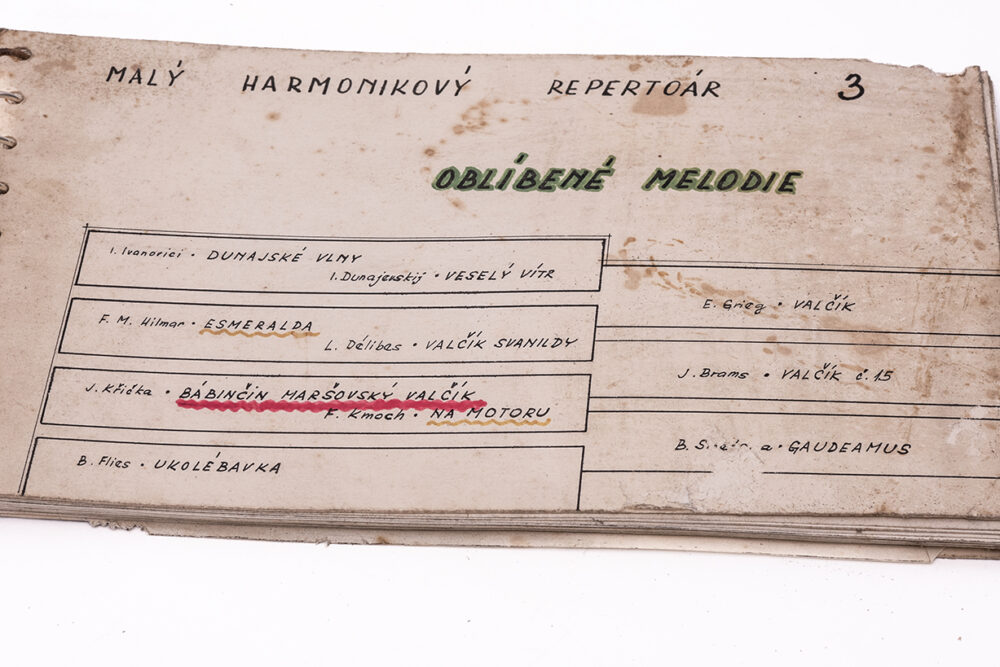 MALÝ HARMONIKOVÝ REPERTOÁR 3
OBLÍBENÉ MELODIE
I. Ivanovici · DUNAJSKÉ VLNY
I. Dunajevskij · VESELÝ VÍTR
F. M. Hilmar · ESMERALDA
L. Délibes · VALČÍK SVANILDY
J. Křička · BÁBINČIN MARŠOVSKÝ VALČÍK
F. Kmoch · NA MOTORU
B. Flies · UKOLÉBAVKA
E. Grieg · VALČÍK
J. Brams · VALČÍK č. 15
B. · GAUDEAMUS